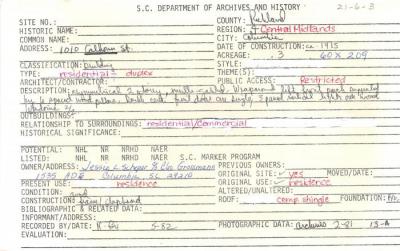 S.C. DEPARTMENT OF ARCHIVES AND HISTORY 21-6-3
HISTORIC NAME: COUNTY: Richland
COMMON NAME: REGION: Central Midlands
ADDRESS: 1010 Calhoun St. CITY: Columbia
DATE OF CONSTRUCTION: ca 1915
ACREAGE: .3 60 x 209
CLASSIFICATION: building STYLE:
TYPE: residential - duplex THEME(S):
ARCHITECT/CONTRACTOR: PUBLIC ACCESS: Restricted
DESCRIPTION: symmetrical 2 story, left front porch supported
by 6 wood front doors on single, 3 panel lights
OUTBUILDINGS:
RELATIONSHIP TO SURROUNDINGS: residential/commercial
HISTORICAL SIGNIFICANCE:
POTENTIAL: NHL NR NRHD NAER
LISTED: NHL NR NRHD NAER S.C. MARKER PROGRAM
OWNER/ADDRESS: Jessie L. & Elo Grossmann PREVIOUS OWNERS:
1535 Columbia, SC 29210 ORIGINAL SITE: yes MOVED/DATE:
PRESENT USE: residence ORIGINAL USE: residence
CONDITION: good ALTERED/UNALTERED:
CONSTRUCTION: clapboard ROOF: comp shingle FOUNDATION:
BIBLIOGRAPHIC & RELATED DATA:
INFORMANT/ADDRESS:
RECORDED BY/DATE: 5-82 PHOTOGRAPHIC DATA: Archives 2-81 13-A
EVALUATION: